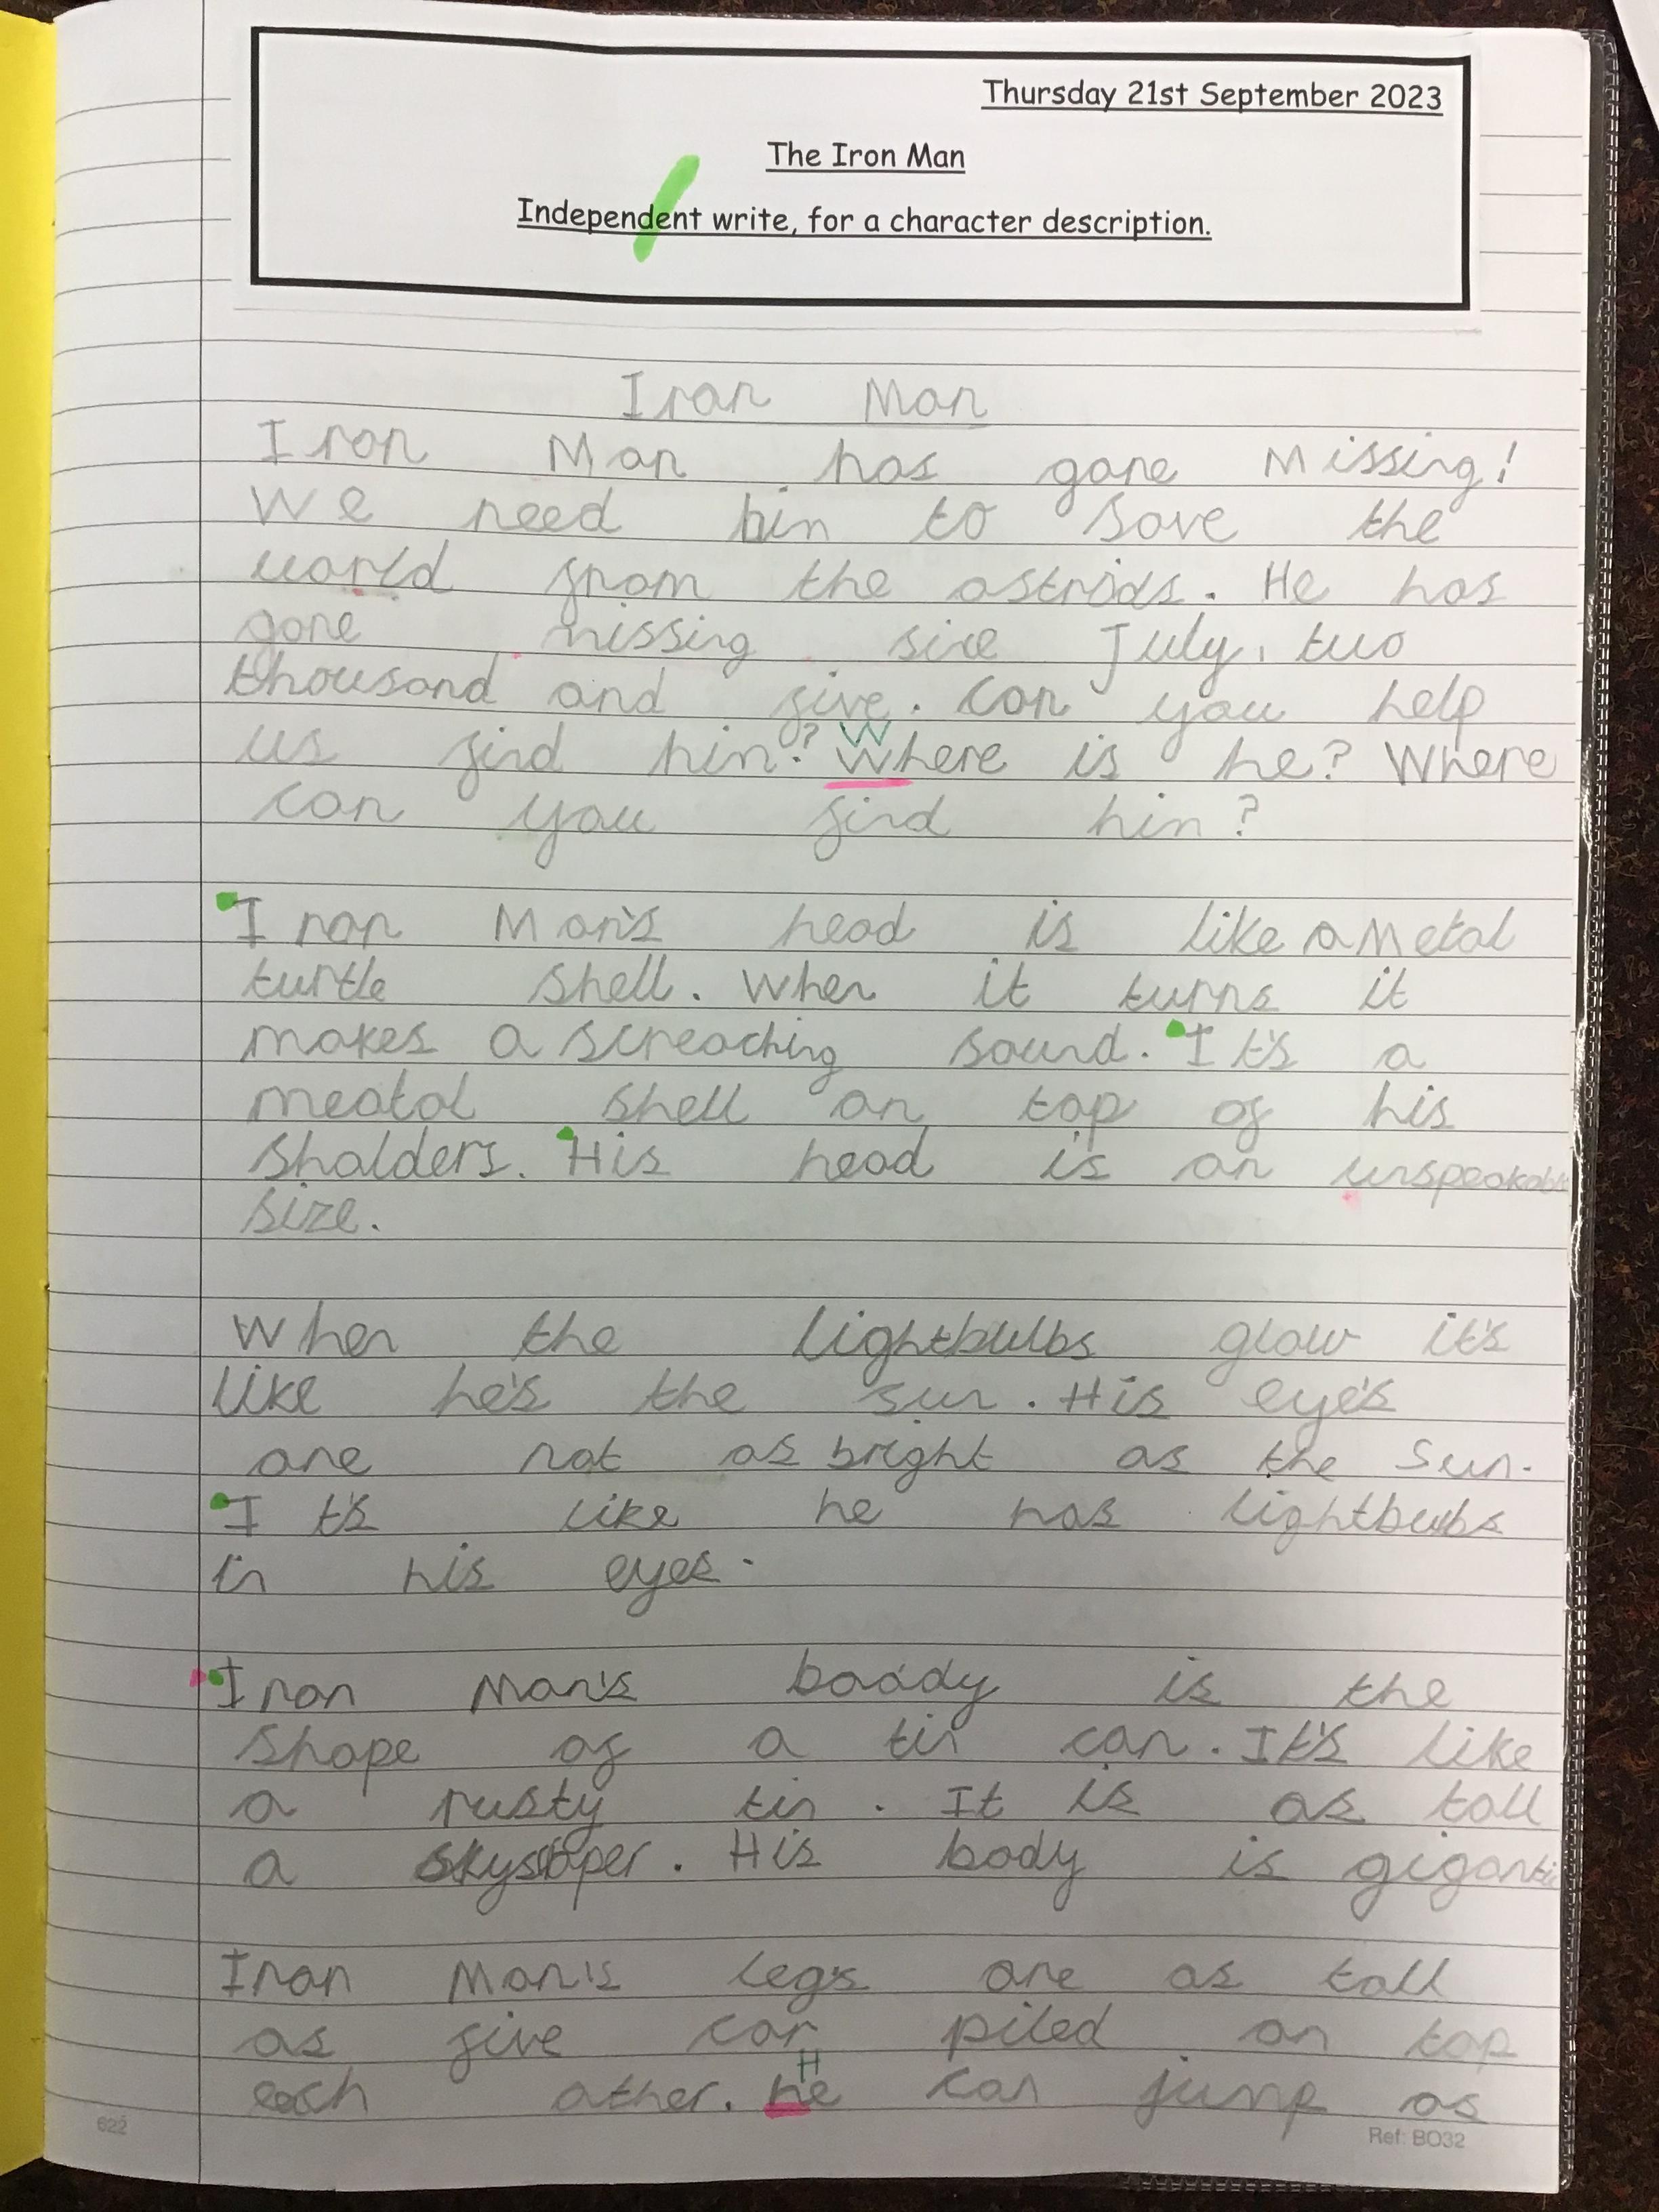 Thursday 21st September 2023
The Iron Man
Independent write, for a character description.
Iron Man
Iron Man has gone Missing!
We need him to save the
world from the astriods. He has
gone missing sice July, two
thousand and five. Can you help
us find him? Where is he? Where
can you find him?
Iron Man's head is like a Metal
turtle shell. When it turns it
makes a screaching sound. It's a
meatal shell on top of his
shalders. His head is an unspeakable
size.
When the lightbulbs glow it's
like he's the sun. His eye's
are not as bright as the sun.
It's like he has lightbulbs
in his eyes.
Iron Man's boady is the
shape of a tin can. It's like
a rusty tin. It is as tall
a. His body is gigantic
Iron Man's legs are as tall
as five car piled on top
each other. He can jump as
622
Ref: BO32